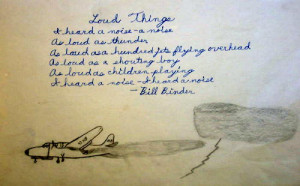 Loud Things
I heard a noise - a noise
As loud as thunder
As loud as a hundred jets flying overhead
As loud as a shouting boy
As loud as children playing
I heard a noise - I heard a noise
- Bill Binder